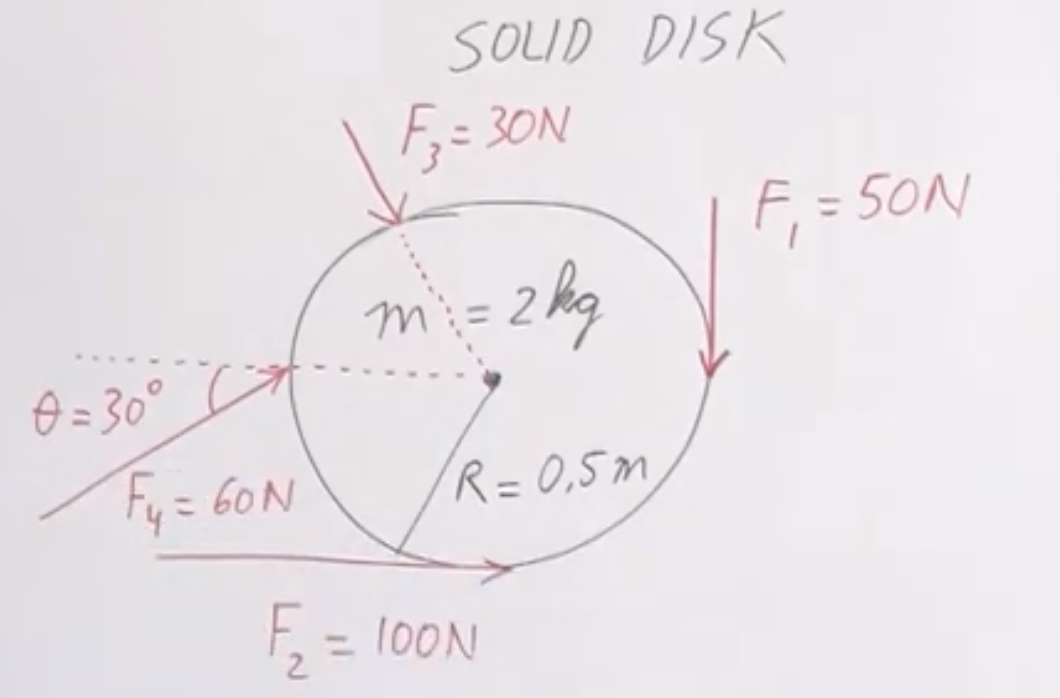 SOLID DISK
F₃ = 30N
F₁ = 50N
m = 2 kg
θ = 30°
R = 0,5 m
F₄ = 60N
F₂ = 100N